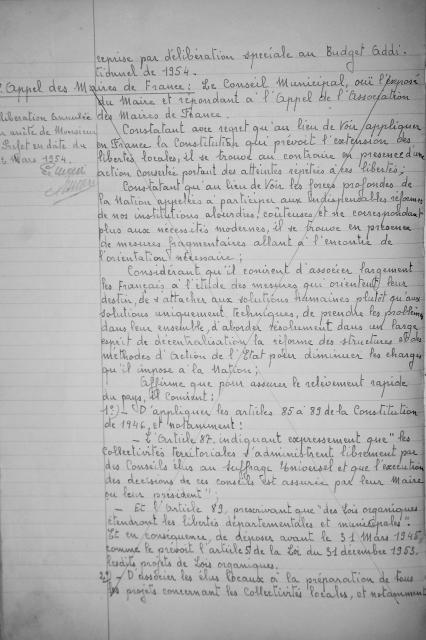 reprise par délibération spéciale au Budget Addi-
tionnel de 1954.
Appel des Maires de France : Le Conseil Municipal, ouï l'exposé
du Maire et répondant à l'Appel de l'Association
des Maires de France.
délibération Annulée
un arrêté de Monsieur
Préfet en date du
Mars 1954.
Constatant avec regret qu'au lieu de voir appliquer
en France la Constitution qui prévoit l'extension des
libertés locales, il se trouve au contraire en présence d'une
action concertée portant des atteintes répétées à ces libertés ;
Constatant qu'au lieu de voir les forces profondes de
la Nation appelées à participer aux indispensables réformes
de nos institutions alourdies, coûteuses et ne correspondant
plus aux nécessités modernes, il se trouve en présence
de mesures fragmentaires allant à l'encontre de
l'orientation nécessaire ;
Considérant qu'il convient d'associer largement
les Français à l'étude des mesures qui orientent leur
destin, de s'attacher aux solutions humaines plutôt qu'aux
solutions uniquement techniques, de prendre les problèmes
dans leur ensemble, d'aborder résolument dans un large
esprit de décentralisation la réforme des structures et des
méthodes d'Action de l'Etat pour diminuer les charges
qu'il impose à la Nation ;
Affirme que pour assurer le relèvement rapide
du pays, il convient :
1°) - D'appliquer les articles 85 à 89 de la Constitution
de 1946, et notamment :
- L'Article 87, indiquant expressement que "les
Collectivités territoriales s'administrent librement par
des Conseils élus au suffrage Universel et que l'exécution
des décisions de ces conseils est assurée par leur Maire
ou leur président" ;
- Et l'Article 89, prescrivant que "des Lois organiques
étendront les libertés départementales et municipales".
Et en conséquence, de déposer avant le 31 Mars 1945,
comme le prévoit l'article 5 de la Loi du 31 decembre 1953.
lesdits projets de Lois organiques.
2°) - D'associer les élus locaux à la préparation de tous
les projets concernant les Collectivités locales, et notamment